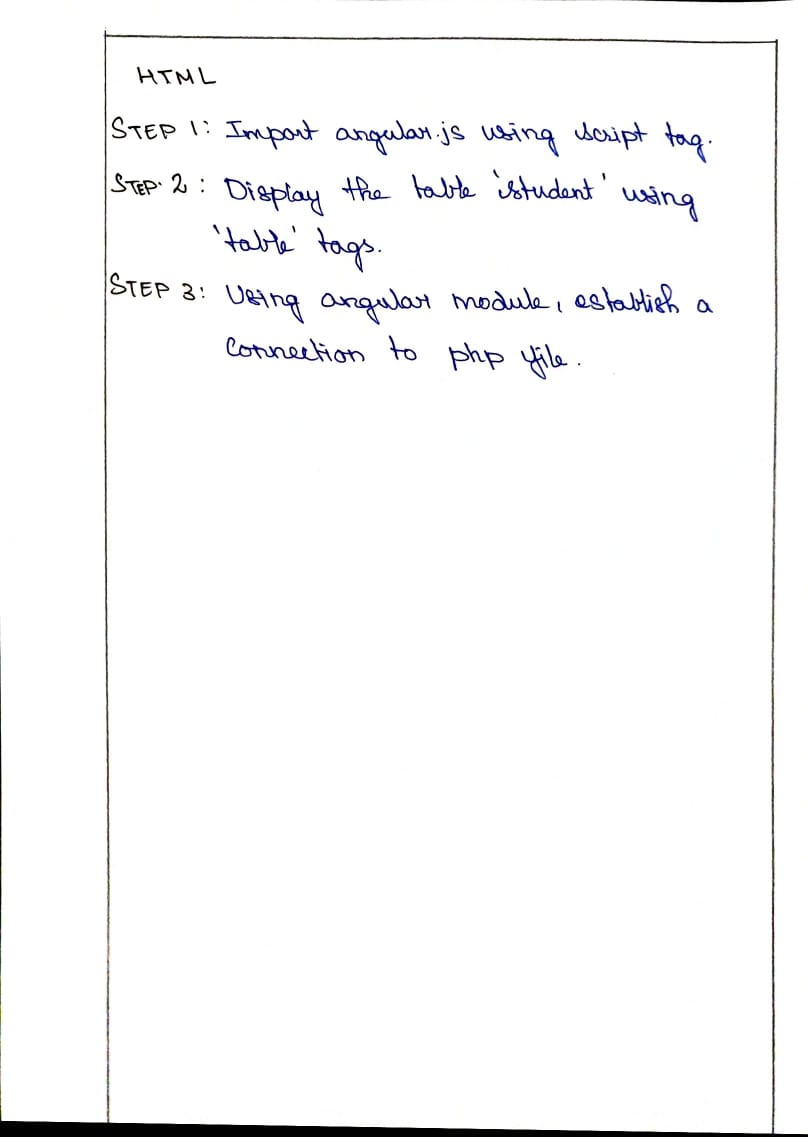 HTML
STEP 1: Import angular.js using script tag.
STEP 2: Display the table 'student' using
'table' tags.
STEP 3: Using angular module, establish a
connection to php file.